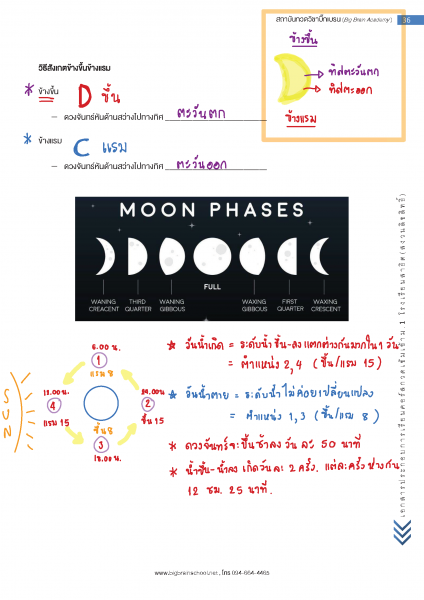 สถาบันกวดวิชาบิ๊กเบรน (Big Brain Academy) 36
ข้างขึ้น
ทิศตะวันตก
ทิศตะออก
ข้างแรม
วิธีสังเกตข้างขึ้นข้างแรม
* ข้างขึ้น D ขึ้น
– ดวงจันทร์หันด้านสว่างไปทางทิศ ตะวันตก
* ข้างแรม C แรม
– ดวงจันทร์หันด้านสว่างไปทางทิศ ตะวันออก
MOON PHASES
WANING CREACENT
THIRD QUARTER
WANING GIBBOUS
FULL
WAXING GIBBOUS
FIRST QUARTER
WAXING CRESCENT
SUN
6.00 น.
1
แรม 8
24.00 น.
2
ขึ้น 15
4
แรม 15
ขึ้น 8
3
18.00 น.
* วันน้ำเกิด = ระดับน้ำ ขึ้น-ลง แตกต่างกันมากใน 1 วัน
= ตำแหน่ง 2,4 (ขึ้น/แรม 15)
* วันน้ำตาย = ระดับน้ำ ไม่ค่อยเปลี่ยนแปลง
= ตำแหน่ง 1,3 (ขึ้น/แรม 8)
* ดวงจันทร์จะขึ้นช้าลง วัน ละ 50 นาที
* น้ำขึ้น-น้ำลง เกิดวันละ 2 ครั้ง. แต่ละครั้ง ห่างกัน
12 ชม. 25 นาที.
www.bigbrainschool.net , โทร 094-664-4465